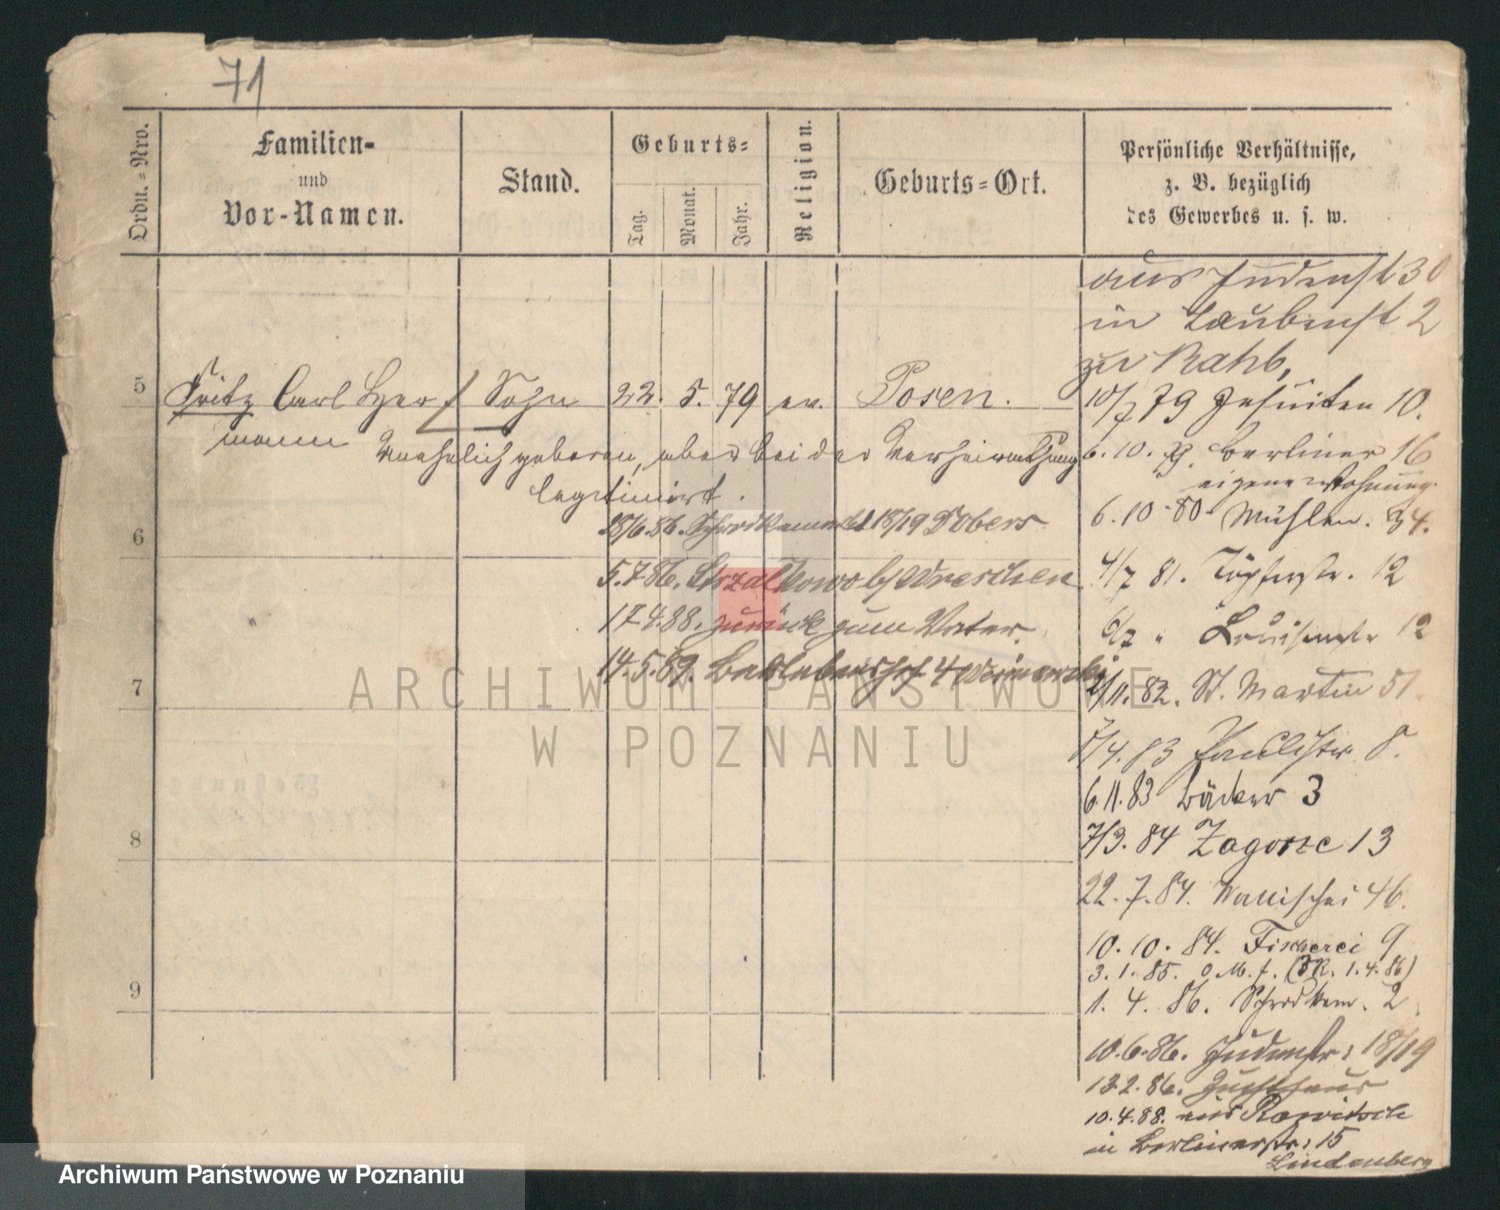 71
Ordn.-Nro.
Familien-
und
Vor-Namen.
Stand.
Geburts-
Tag.
Monat.
Jahr.
Religion.
Geburts-Ort.
Persönliche Verhältnisse,
z. B. bezüglich
des Gewerbes u. s. w.
aus Judenst 30
in Laubenst 2
zu Rahb,
5 Fritz Carl Her Sohn 22. 5. 79 ev. Posen.
mann
10/7 79 Jesuiten 10.
unehelich geboren, aber bei der Verheirathung
legitimirt.
6.10. 79. Berliner 16
eigene Wohnung.
6
6.10.80. Mühlen. 34.
18/6.86. 18/19 Dobers
5.7.86. Strzalkowo b/Wreschen
4/7 81. Töpferstr. 12
17.4.88. zurück zum Vater.
6/7 " Louisenstr 12
7
14.5.89. 4
2/11.82. St. Martin 51
7/4.83 Paulistr 8.
6.11.83 Bäcker 3
8
7/3.84 Zagorze 13
22.7.84. Wallischei 46.
10.10.84. Fischerei 9
3.1.85. o M. f. (3R. 1.4.86)
9
1.4.86. Schrodkam. 2
10.6.86. Judenstr: 18/19
13.2.86. Zuchthaus
10.4.88. aus Rawitsch
in Berlinerstr: 15
Lindenberg
ARCHIWUM PAŃSTWOWE
W POZNANIU
Archiwum Państwowe w Poznaniu